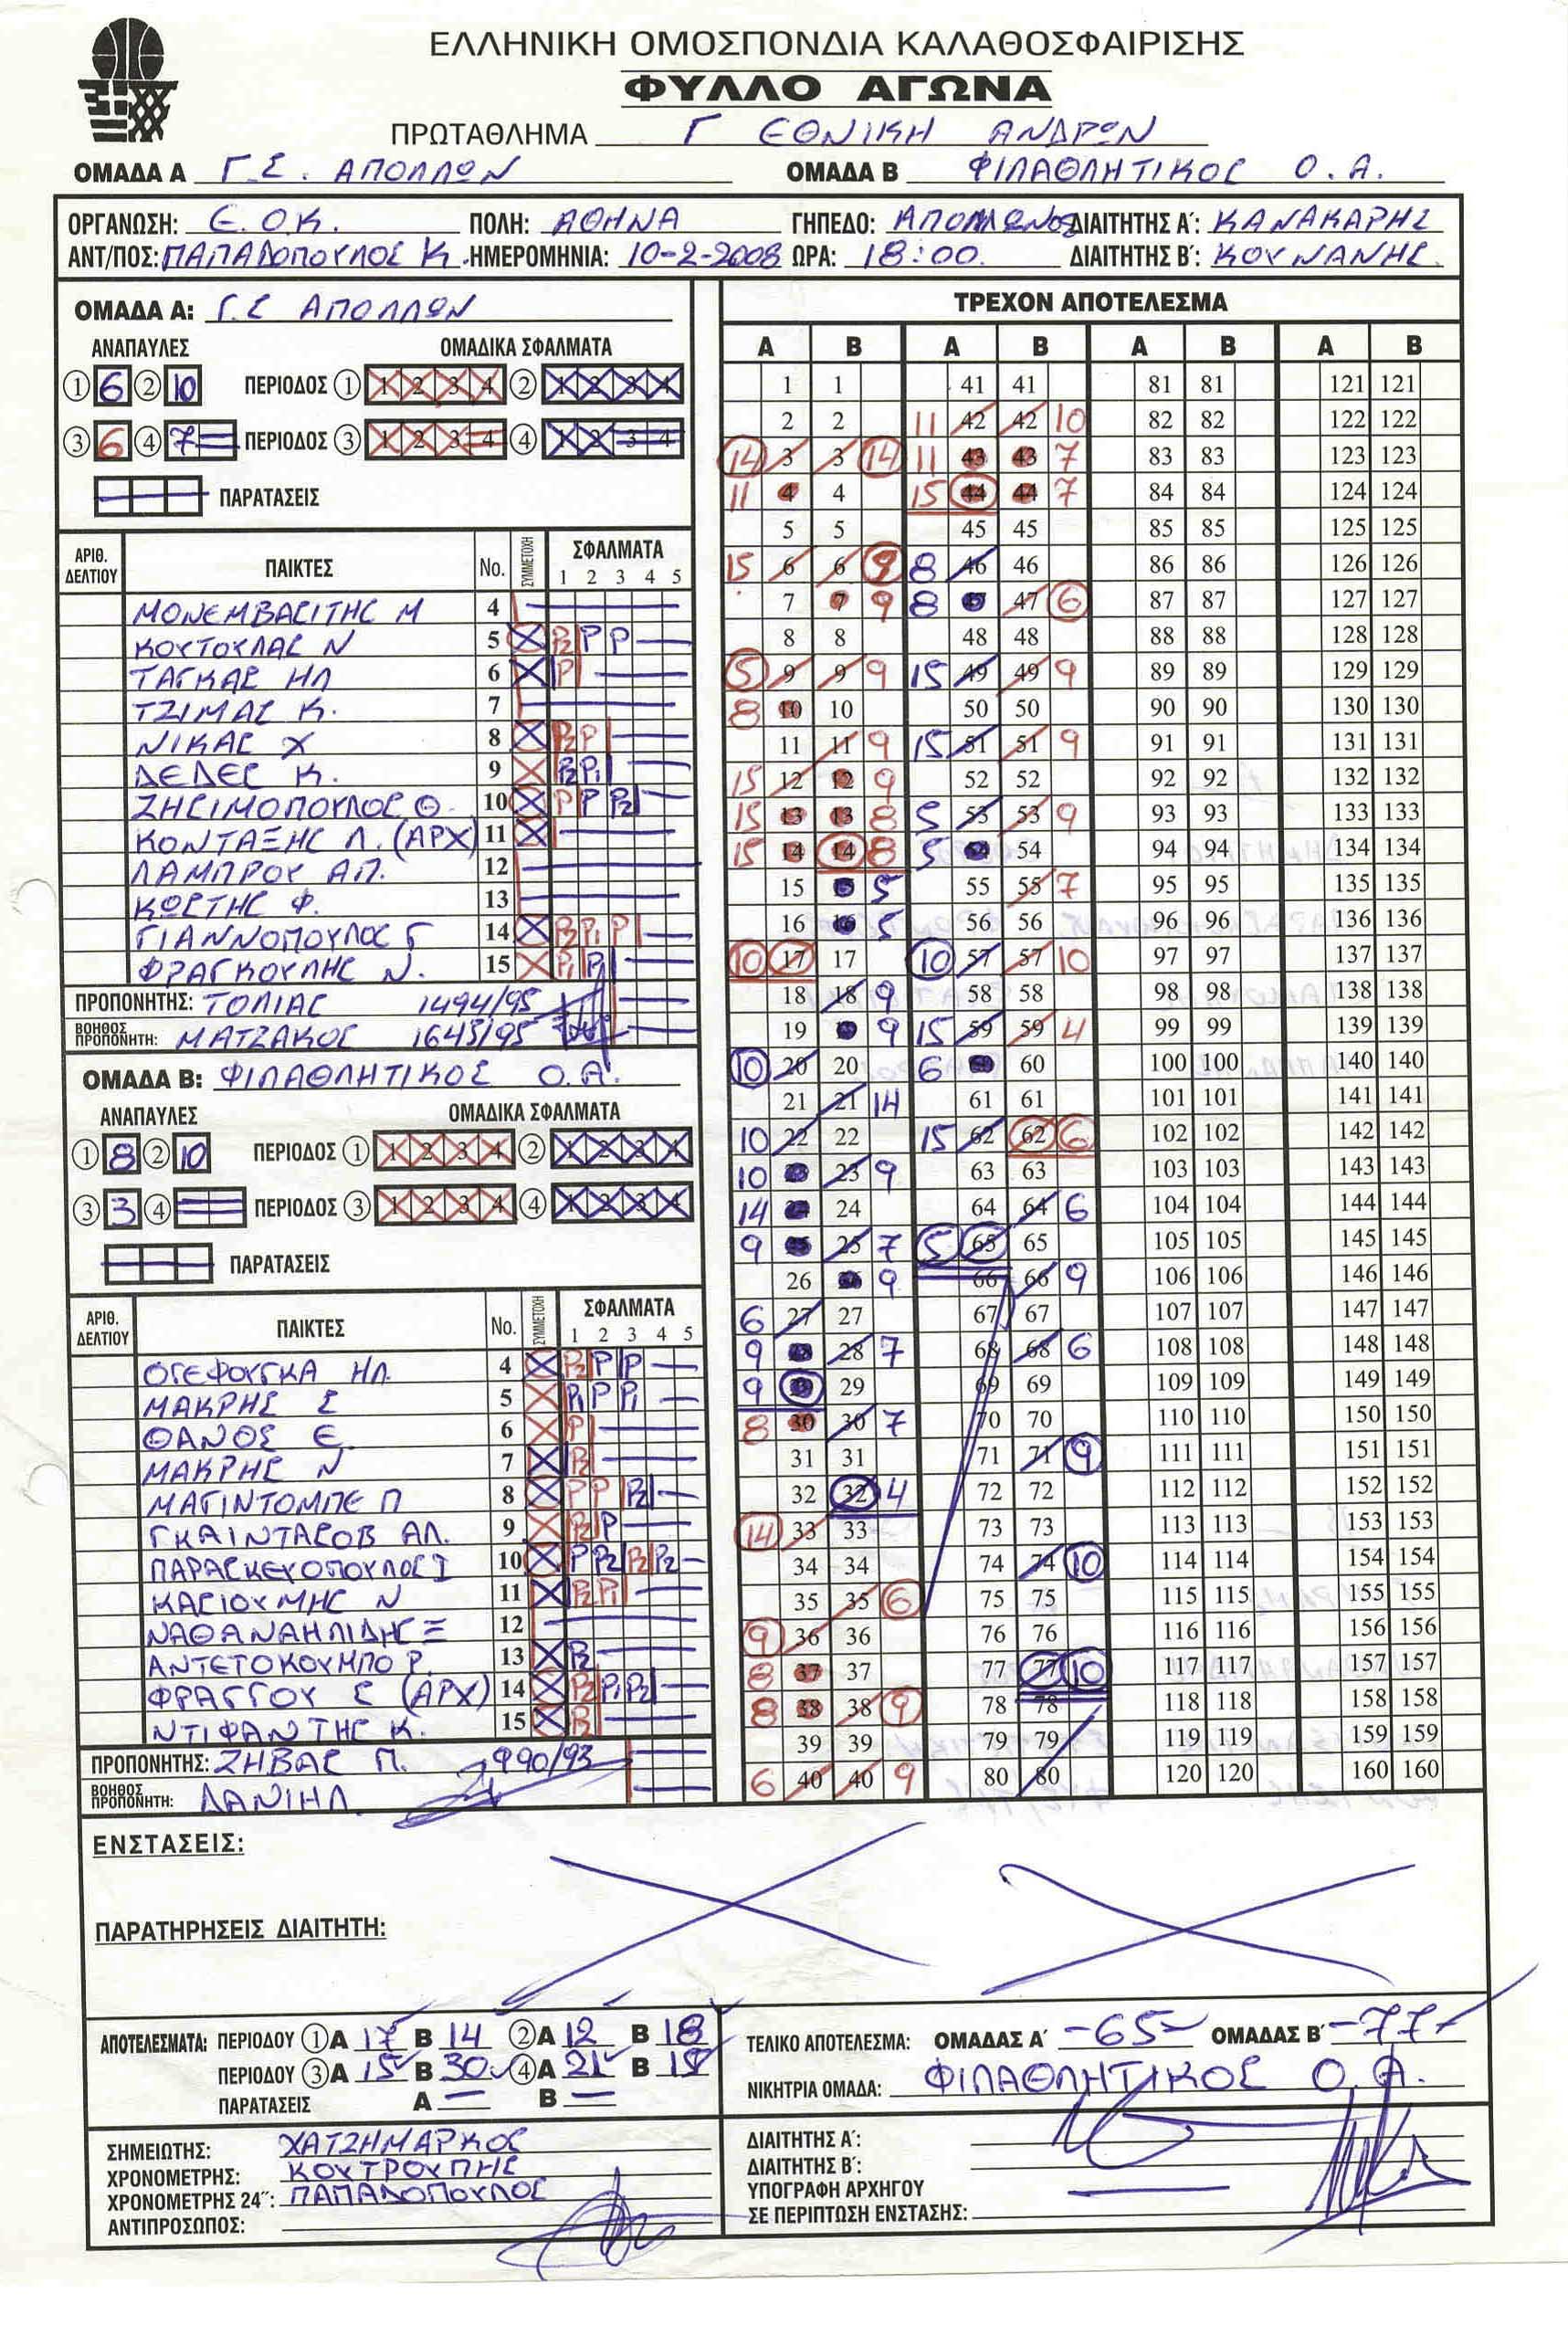 ΕΛΛΗΝΙΚΗ ΟΜΟΣΠΟΝΔΙΑ ΚΑΛΑΘΟΣΦΑΙΡΙΣΗΣ
ΦΥΛΛΟ ΑΓΩΝΑ
ΠΡΩΤΑΘΛΗΜΑ Γ ΕΘΝΙΚΗ ΑΝΔΡΩΝ
ΟΜΑΔΑ Α Γ.Σ. ΑΠΟΛΛΩΝ ΟΜΑΔΑ Β ΦΙΛΑΘΛΗΤΙΚΟΣ Ο.Α.
ΟΡΓΑΝΩΣΗ: Ε.Ο.Κ. ΠΟΛΗ: ΑΘΗΝΑ ΓΗΠΕΔΟ: ΑΠΟΛΛΩΝΟΣ ΔΙΑΙΤΗΤΗΣ Α΄: ΚΑΝΑΚΑΡΗΣ
ΑΝΤ/ΠΟΣ: ΠΑΠΑΔΟΠΟΥΛΟΣ Κ. ΗΜΕΡΟΜΗΝΙΑ: 10-2-2008 ΩΡΑ: 18:00 ΔΙΑΙΤΗΤΗΣ Β΄: ΚΟΥΝΑΝΗΣ
ΟΜΑΔΑ Α: Γ.Σ ΑΠΟΛΛΩΝ
ΑΝΑΠΑΥΛΕΣ ΟΜΑΔΙΚΑ ΣΦΑΛΜΑΤΑ
1 6 2 10 ΠΕΡΙΟΔΟΣ 1 1 2 3 4 2 1 2 3 4
3 6 4 7 ΠΕΡΙΟΔΟΣ 3 1 2 3 4 4 1 2 3 4
ΠΑΡΑΤΑΣΕΙΣ
ΑΡΙΘ. ΔΕΛΤΙΟΥ ΠΑΙΚΤΕΣ No. ΣΥΜΜΕΤΟΧΗ ΣΦΑΛΜΑΤΑ
1 2 3 4 5
ΜΟΝΕΜΒΑΣΙΤΗΣ Μ 4
ΚΟΥΤΟΥΛΑΣ Ν 5 P2 P P
ΤΑΓΚΑΣ ΗΛ 6 P
ΤΖΙΜΑΣ Κ. 7
ΝΙΚΑΣ Χ 8 P2 P
ΔΕΔΕΣ Κ. 9 P2 P1
ΖΗΣΙΜΟΠΟΥΛΟΣ Θ. 10 P P P2
ΚΟΝΤΑΞΗΣ Λ. (ΑΡΧ) 11
ΛΑΜΠΡΟΥ ΑΠ. 12
ΚΩΣΤΗΣ Φ. 13
ΓΙΑΝΝΟΠΟΥΛΟΣ Γ 14 P2 P1 P
ΦΡΑΓΚΟΥΛΗΣ Ν. 15 P1 P
ΠΡΟΠΟΝΗΤΗΣ: ΤΟΛΙΑΣ 1494/95
ΒΟΗΘΟΣ ΠΡΟΠΟΝΗΤΗ: ΜΑΤΖΑΚΟΣ 1643/95
ΟΜΑΔΑ Β: ΦΙΛΑΘΛΗΤΙΚΟΣ Ο.Α.
ΑΝΑΠΑΥΛΕΣ ΟΜΑΔΙΚΑ ΣΦΑΛΜΑΤΑ
1 8 2 10 ΠΕΡΙΟΔΟΣ 1 1 2 3 4 2 1 2 3 4
3 3 4 ΠΕΡΙΟΔΟΣ 3 1 2 3 4 4 1 2 3 4
ΠΑΡΑΤΑΣΕΙΣ
ΑΡΙΘ. ΔΕΛΤΙΟΥ ΠΑΙΚΤΕΣ No. ΣΥΜΜΕΤΟΧΗ ΣΦΑΛΜΑΤΑ
1 2 3 4 5
ΟΓΕΦΟΥΓΚΑ ΗΛ. 4 P2 P P
ΜΑΚΡΗΣ Σ 5 P1 P P1
ΘΑΝΟΣ Ε. 6 P
ΜΑΚΡΗΣ Ν 7 P2
ΜΑΓΙΝΤΟΜΠΕ Π 8 P P P2
ΓΚΑΙΝΤΑΣΟΒ ΑΛ. 9 P2 P
ΠΑΡΑΣΚΕΥΟΠΟΥΛΟΣ Ι 10 P P2 P2 P2
ΚΑΣΙΟΥΜΗΣ Ν 11 P2 P1
ΝΑΘΑΝΑΗΛΙΔΗΣ Ξ 12
ΑΝΤΕΤΟΚΟΥΜΠΟ Ρ. 13 P2
ΦΡΑΓΓΟΥ Σ (ΑΡΧ) 14 P2 P1 P2
ΝΤΙΦΑΝΤΗΣ Κ. 15 P2
ΠΡΟΠΟΝΗΤΗΣ: ΖΗΒΑΣ Π. 990/93
ΒΟΗΘΟΣ ΠΡΟΠΟΝΗΤΗ: ΔΑΝΙΗΛ
ΤΡΕΧΟΝ ΑΠΟΤΕΛΕΣΜΑ
Α Β Α Β Α Β Α Β
1 1 41 41 81 81 121 121
2 2 11 42 42 10 82 82 122 122
14 3 3 14 11 43 43 7 83 83 123 123
11 4 4 15 44 44 7 84 84 124 124
5 5 45 45 85 85 125 125
15 6 6 9 8 46 46 86 86 126 126
7 7 9 8 47 47 6 87 87 127 127
8 8 48 48 88 88 128 128
5 9 9 9 15 49 49 9 89 89 129 129
8 10 10 50 50 90 90 130 130
11 11 9 15 51 51 9 91 91 131 131
15 12 12 9 52 52 92 92 132 132
15 13 13 8 5 53 53 9 93 93 133 133
15 14 14 8 5 54 54 94 94 134 134
15 15 5 55 55 7 95 95 135 135
16 16 5 56 56 96 96 136 136
10 17 17 10 57 57 10 97 97 137 137
18 18 9 58 58 98 98 138 138
19 19 9 15 59 59 4 99 99 139 139
10 20 20 6 60 60 100 100 140 140
21 21 14 61 61 101 101 141 141
10 22 22 15 62 62 6 102 102 142 142
10 23 23 9 63 63 103 103 143 143
14 24 24 64 64 6 104 104 144 144
9 25 25 7 5 65 65 105 105 145 145
26 26 9 66 66 9 106 106 146 146
6 27 27 67 67 107 107 147 147
9 28 28 7 68 68 6 108 108 148 148
9 29 29 69 69 109 109 149 149
8 30 30 7 70 70 110 110 150 150
31 31 71 71 9 111 111 151 151
32 32 4 72 72 112 112 152 152
14 33 33 73 73 113 113 153 153
34 34 74 74 10 114 114 154 154
35 35 6 75 75 115 115 155 155
9 36 36 76 76 116 116 156 156
8 37 37 77 77 10 117 117 157 157
8 38 38 9 78 78 118 118 158 158
39 39 79 79 119 119 159 159
6 40 40 9 80 80 120 120 160 160
ΕΝΣΤΑΣΕΙΣ:
ΠΑΡΑΤΗΡΗΣΕΙΣ ΔΙΑΙΤΗΤΗ:
ΑΠΟΤΕΛΕΣΜΑΤΑ: ΠΕΡΙΟΔΟΥ 1 Α 17 Β 14 2 Α 12 Β 18
ΠΕΡΙΟΔΟΥ 3 Α 15 Β 30 4 Α 21 Β 15
ΠΑΡΑΤΑΣΕΙΣ Α — Β —
ΤΕΛΙΚΟ ΑΠΟΤΕΛΕΣΜΑ: ΟΜΑΔΑΣ Α΄ -65- ΟΜΑΔΑΣ Β΄ -77-
ΝΙΚΗΤΡΙΑ ΟΜΑΔΑ: ΦΙΛΑΘΛΗΤΙΚΟΣ Ο.Α.
ΣΗΜΕΙΩΤΗΣ: ΧΑΤΖΗΜΑΡΚΟΣ
ΧΡΟΝΟΜΕΤΡΗΣ: ΚΟΥΤΡΟΥΠΗΣ
ΧΡΟΝΟΜΕΤΡΗΣ 24": ΠΑΠΑΔΟΠΟΥΛΟΣ
ΑΝΤΙΠΡΟΣΩΠΟΣ:
ΔΙΑΙΤΗΤΗΣ Α΄:
ΔΙΑΙΤΗΤΗΣ Β΄:
ΥΠΟΓΡΑΦΗ ΑΡΧΗΓΟΥ
ΣΕ ΠΕΡΙΠΤΩΣΗ ΕΝΣΤΑΣΗΣ: